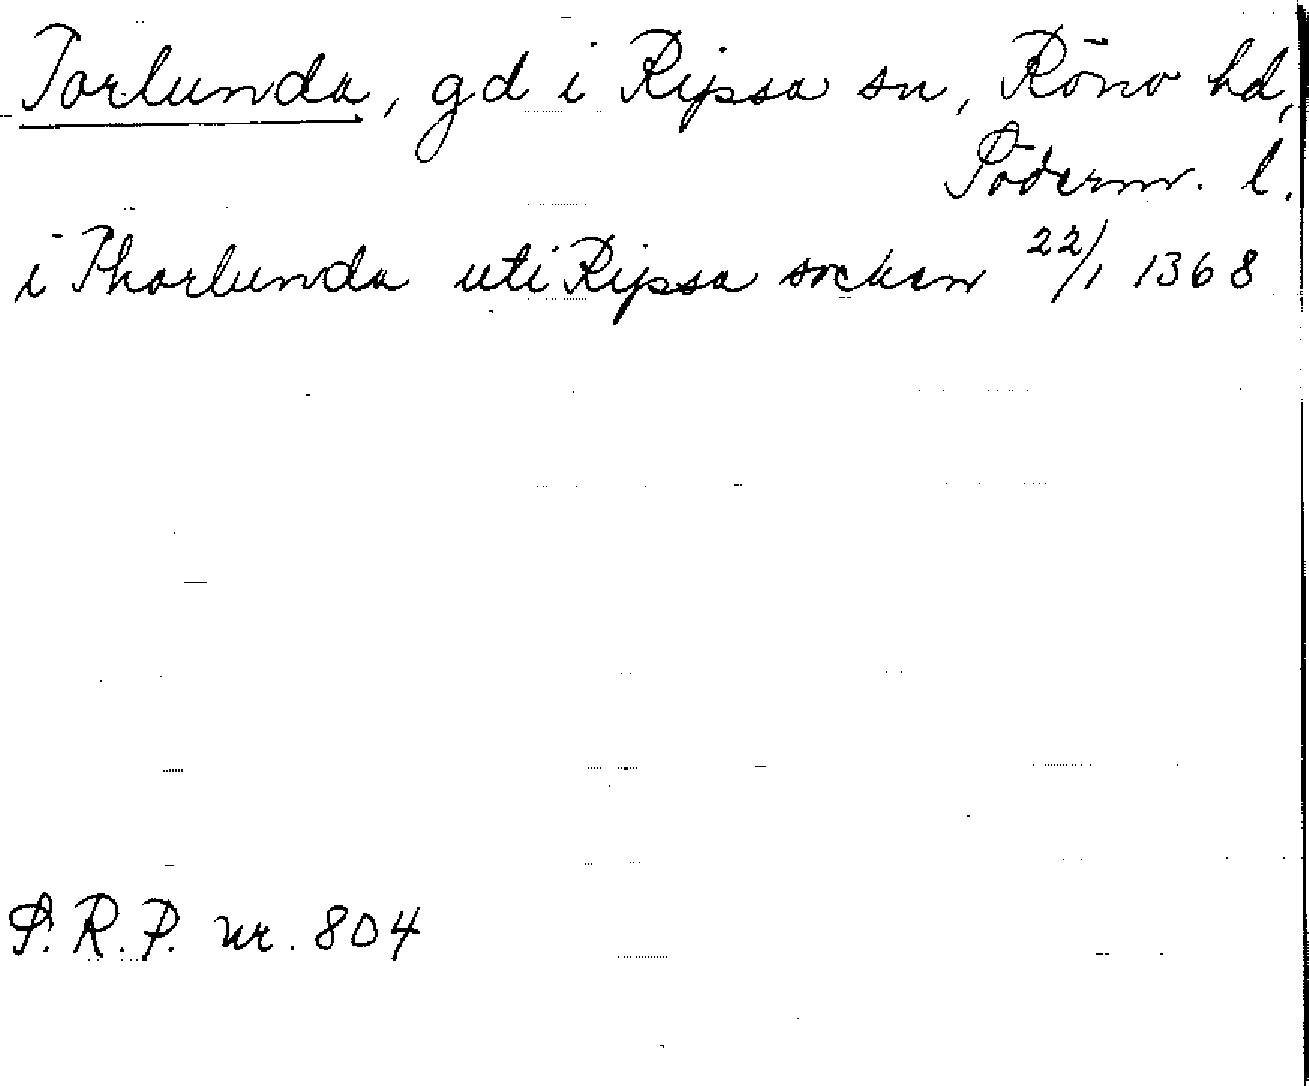 Torlunda, gd i Ripsa sn, Rönö hd,
Söderm. l.
i Thorlunda uti Ripsa sockan 22/1 1368
S.R.P. nr. 804